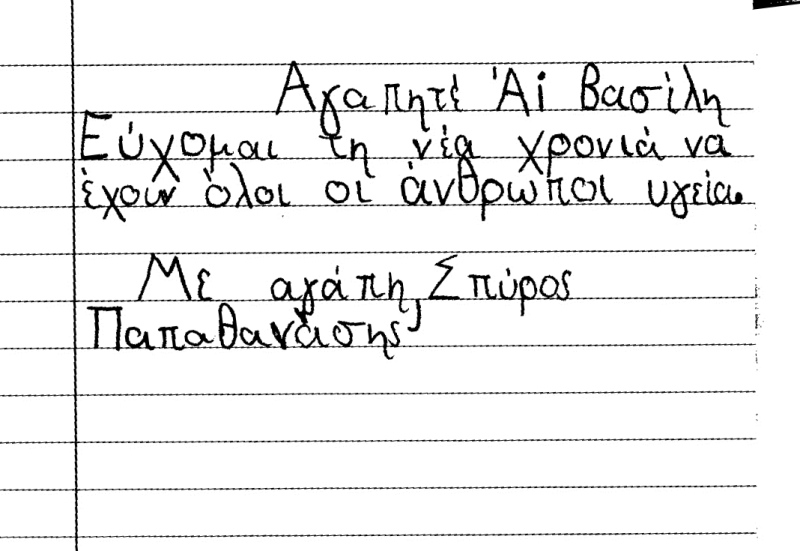 Αγαπητέ Άι Βασίλη
Εύχομαι τη νέα χρονιά να
έχουν όλοι οι άνθρωποι υγεία.
Με αγάπη, Σπύρος
Παπαθανάσης